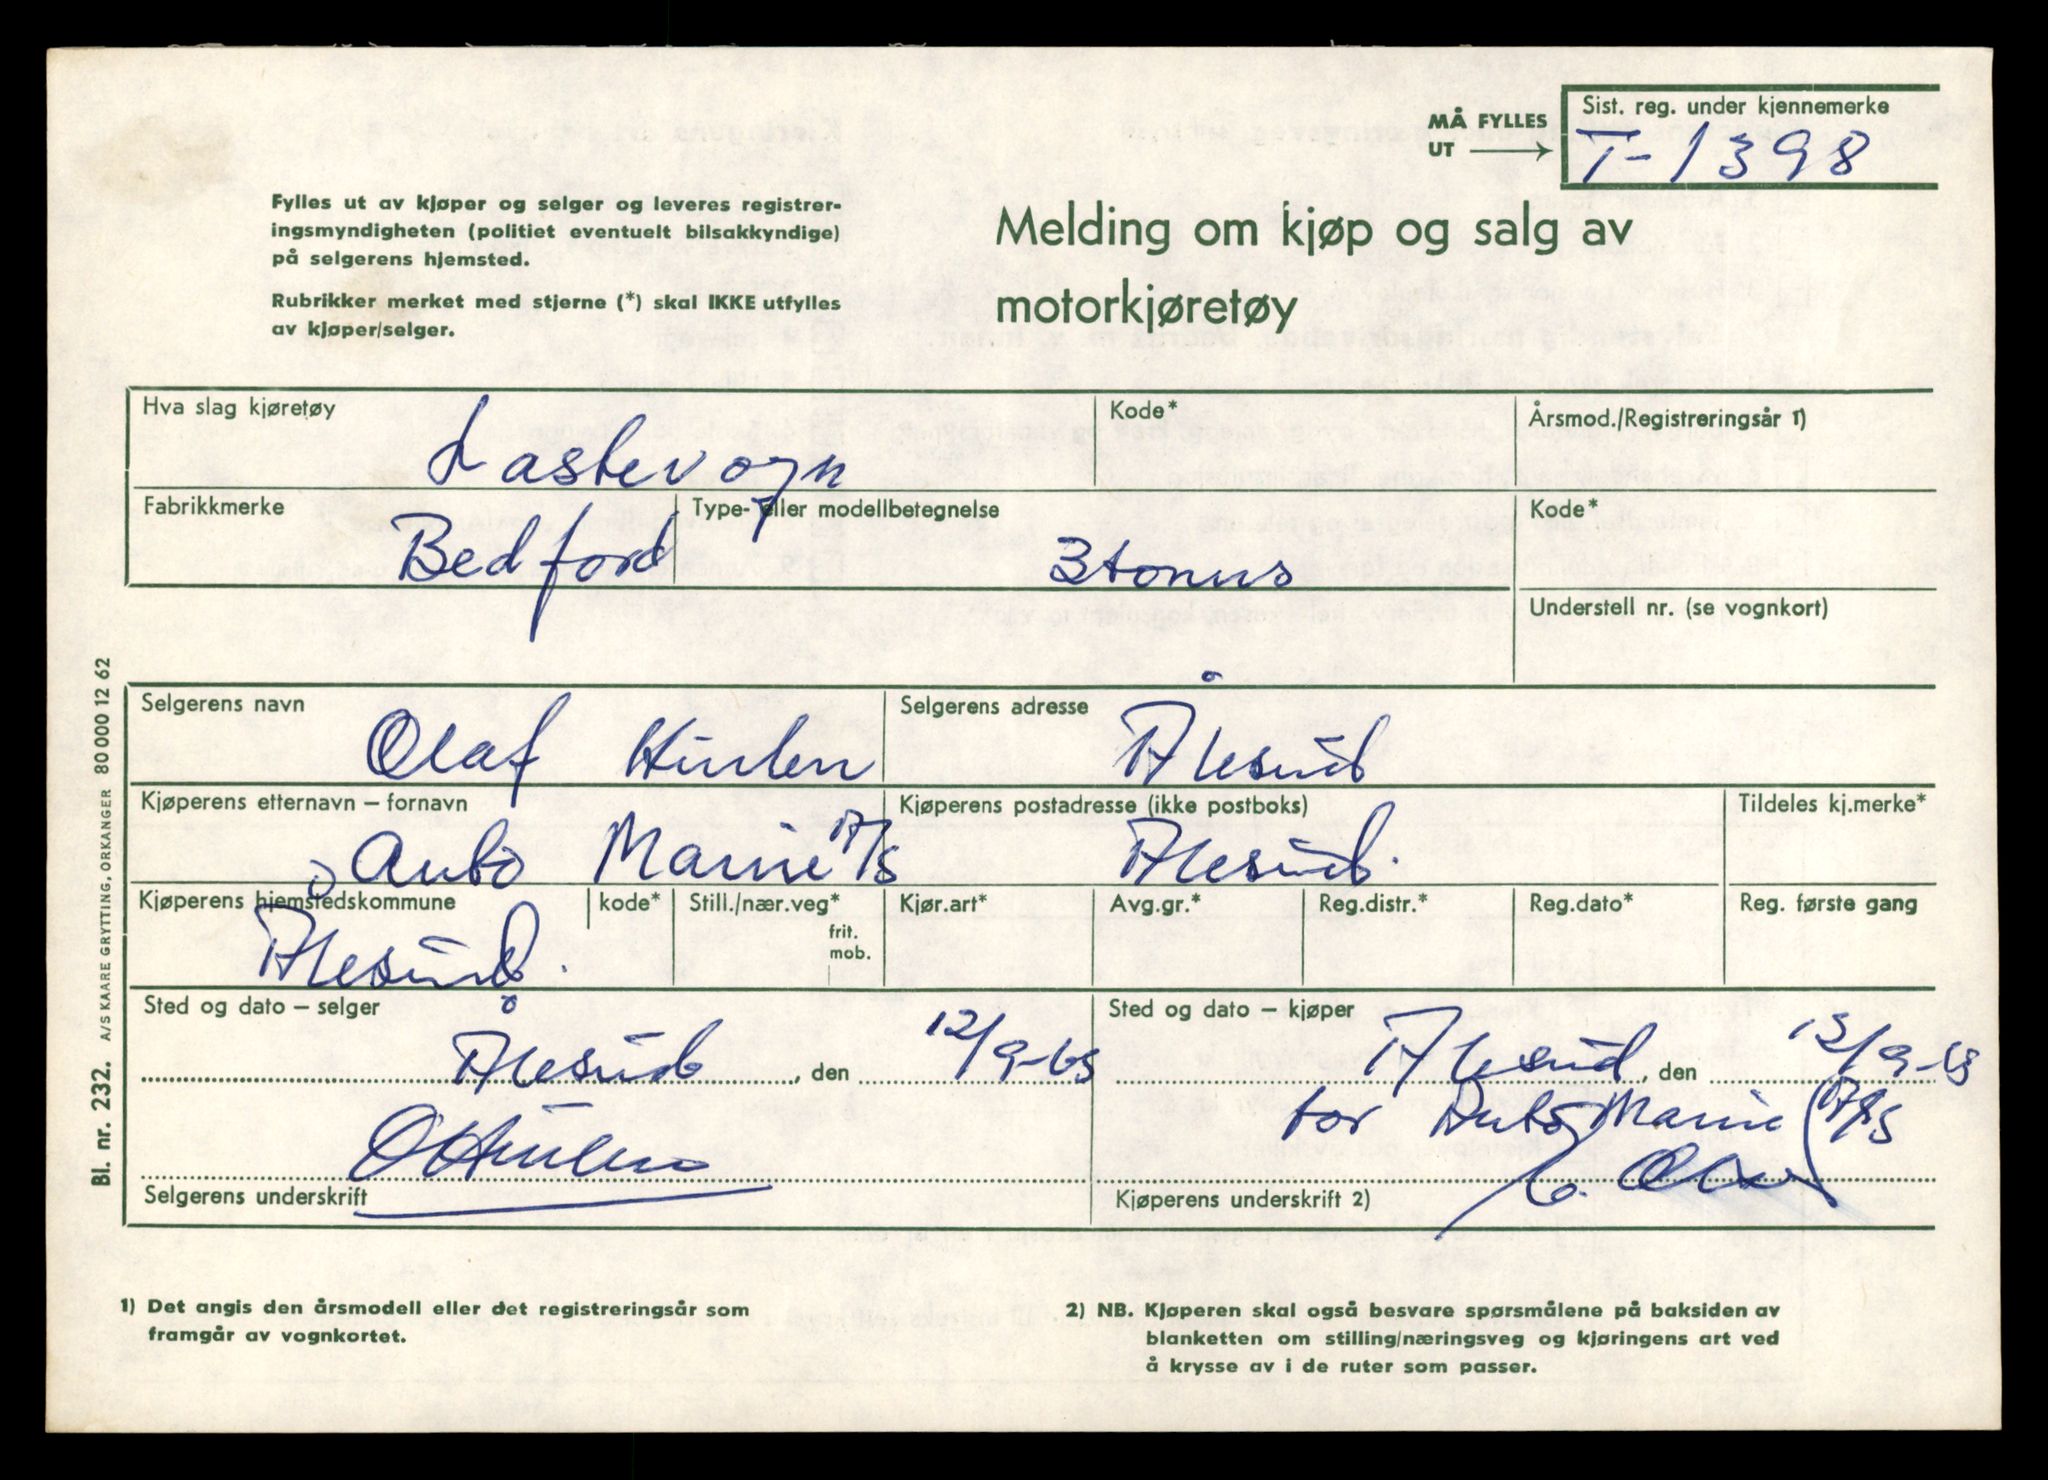 MÅ FYLLES
UT
Sist. reg. under kjennemerke
T-1398
Fylles ut av kjøper og selger og leveres registrer-
ingsmyndigheten (politiet eventuelt bilsakkyndige)
på selgerens hjemsted.
Rubrikker merket med stjerne (*) skal IKKE utfylles
av kjøper/selger.
Melding om kjøp og salg av
motorkjøretøy
Hva slag kjøretøy
Lastevogn
Kode*
Årsmod./Registreringsår 1)
Fabrikkmerke
Bedford
Type- eller modellbetegnelse
3 tonns
Kode*
Understell nr. (se vognkort)
Selgerens navn
Olaf
Selgerens adresse
Ålesund
Kjøperens etternavn – fornavn
Auto Marine A/S
Kjøperens postadresse (ikke postboks)
Alesund.
Tildeles kj.merke*
Kjøperens hjemstedskommune
Ålesund.
kode*
Still./nær.veg*
frit.
mob.
Kjør.art*
Avg.gr.*
Reg.distr.*
Reg.dato*
Reg. første gang
Sted og dato – selger
Ålesund, den 12/9-65
Selgerens underskrift
Sted og dato – kjøper
Alesund, den
for Auto Marine A/S
Kjøperens underskrift 2)
1) Det angis den årsmodell eller det registreringsår som
framgår av vognkortet.
2) NB. Kjøperen skal også besvare spørsmålene på baksiden av
blanketten om stilling/næringsveg og kjøringens art ved
å krysse av i de ruter som passer.
Bl. nr. 232. A/S KAARE GRYTTING, ORKANGER 80 000 12 62